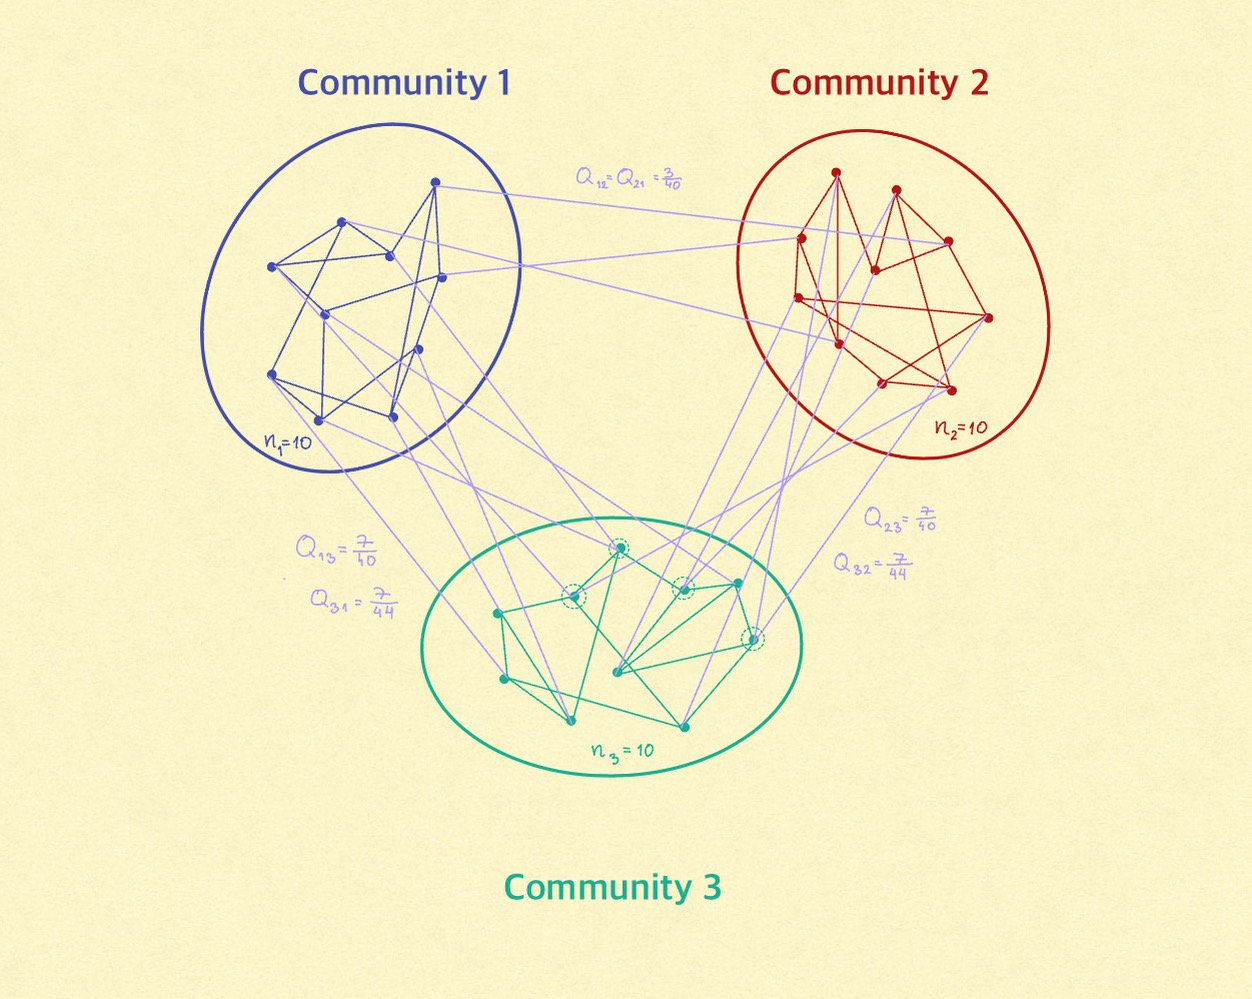 Community 1
Community 2
Q₁₂=Q₂₁=3/40
n₁=10
n₂=10
Q₁₃=7/40
Q₃₁=7/44
Q₂₃=7/40
Q₃₂=7/44
n₃=10
Community 3